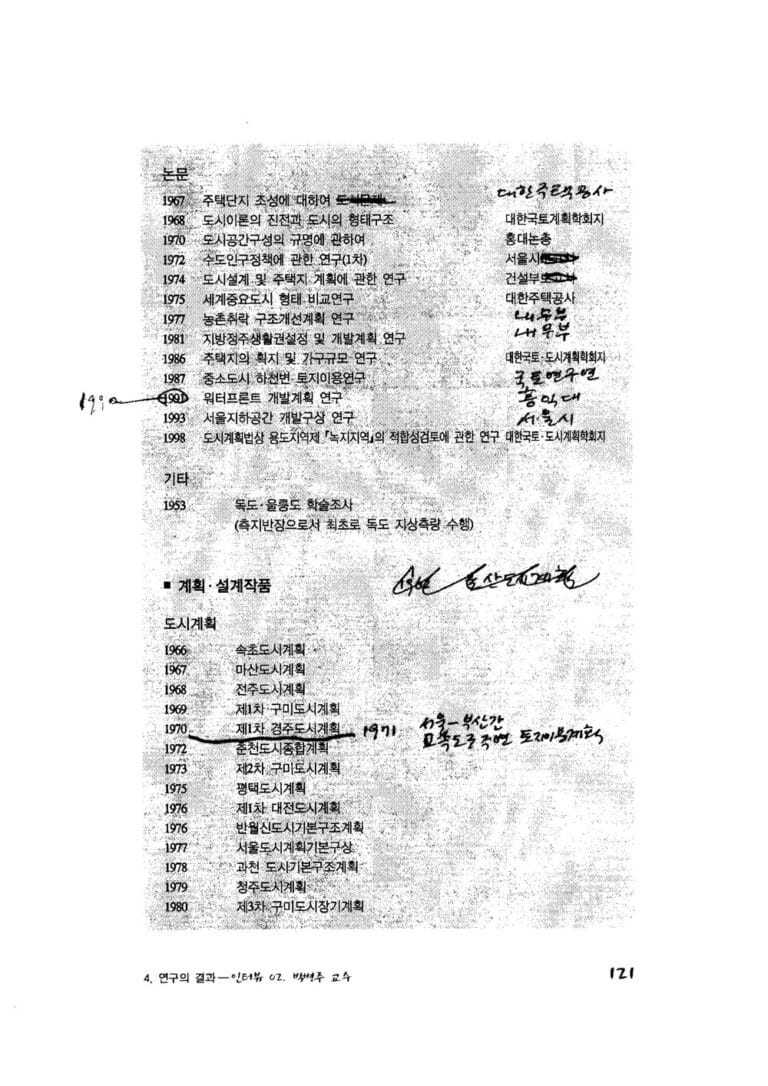 논문
1967 주택단지 조성에 대하여 대한주택공사
1968 도시이론의 진전과 도시의 형태구조 대한국토계획학회지
1970 도시공간구성의 규명에 관하여 홍대논총
1972 수도인구정책에 관한 연구(1차) 서울시
1974 도시설계 및 주택지 계획에 관한 연구 건설부
1975 세계중요도시 형태 비교연구 대한주택공사
1977 농촌취락 구조개선계획 연구 내무부
1981 지방정주생활권설정 및 개발계획 연구 내무부
1986 주택지의 획지 및 가구규모 연구 대한국토·도시계획학회지
1987 중소도시 하천변 토지이용연구 국토연구연
1990 1991 워터프론트 개발계획 연구 홍익대
1993 서울지하공간 개발구상 연구 서울시
1998 도시계획법상 용도지역제 「녹지지역」의 적합성검토에 관한 연구 대한국토·도시계획학회지
기타
1953 독도·울릉도 학술조사
(측지반장으로서 최초로 독도 지상측량 수행)
■ 계획·설계작품
도시계획
1966 속초도시계획
1967 마산도시계획
1968 전주도시계획
1969 제1차 구미도시계획
1970 제1차 경주도시계획 1971 서울-부산간
고속도로주변 토지이용계획
1972 춘천도시종합계획
1973 제2차 구미도시계획
1975 평택도시계획
1976 제1차 대전도시계획
1976 반월신도시기본구조계획
1977 서울도시계획기본구상
1978 과천 도시기본구조계획
1979 청주도시계획
1980 제3차 구미도시장기계획
4. 연구의 결과 — 인터뷰 02. 박병주 교수 121